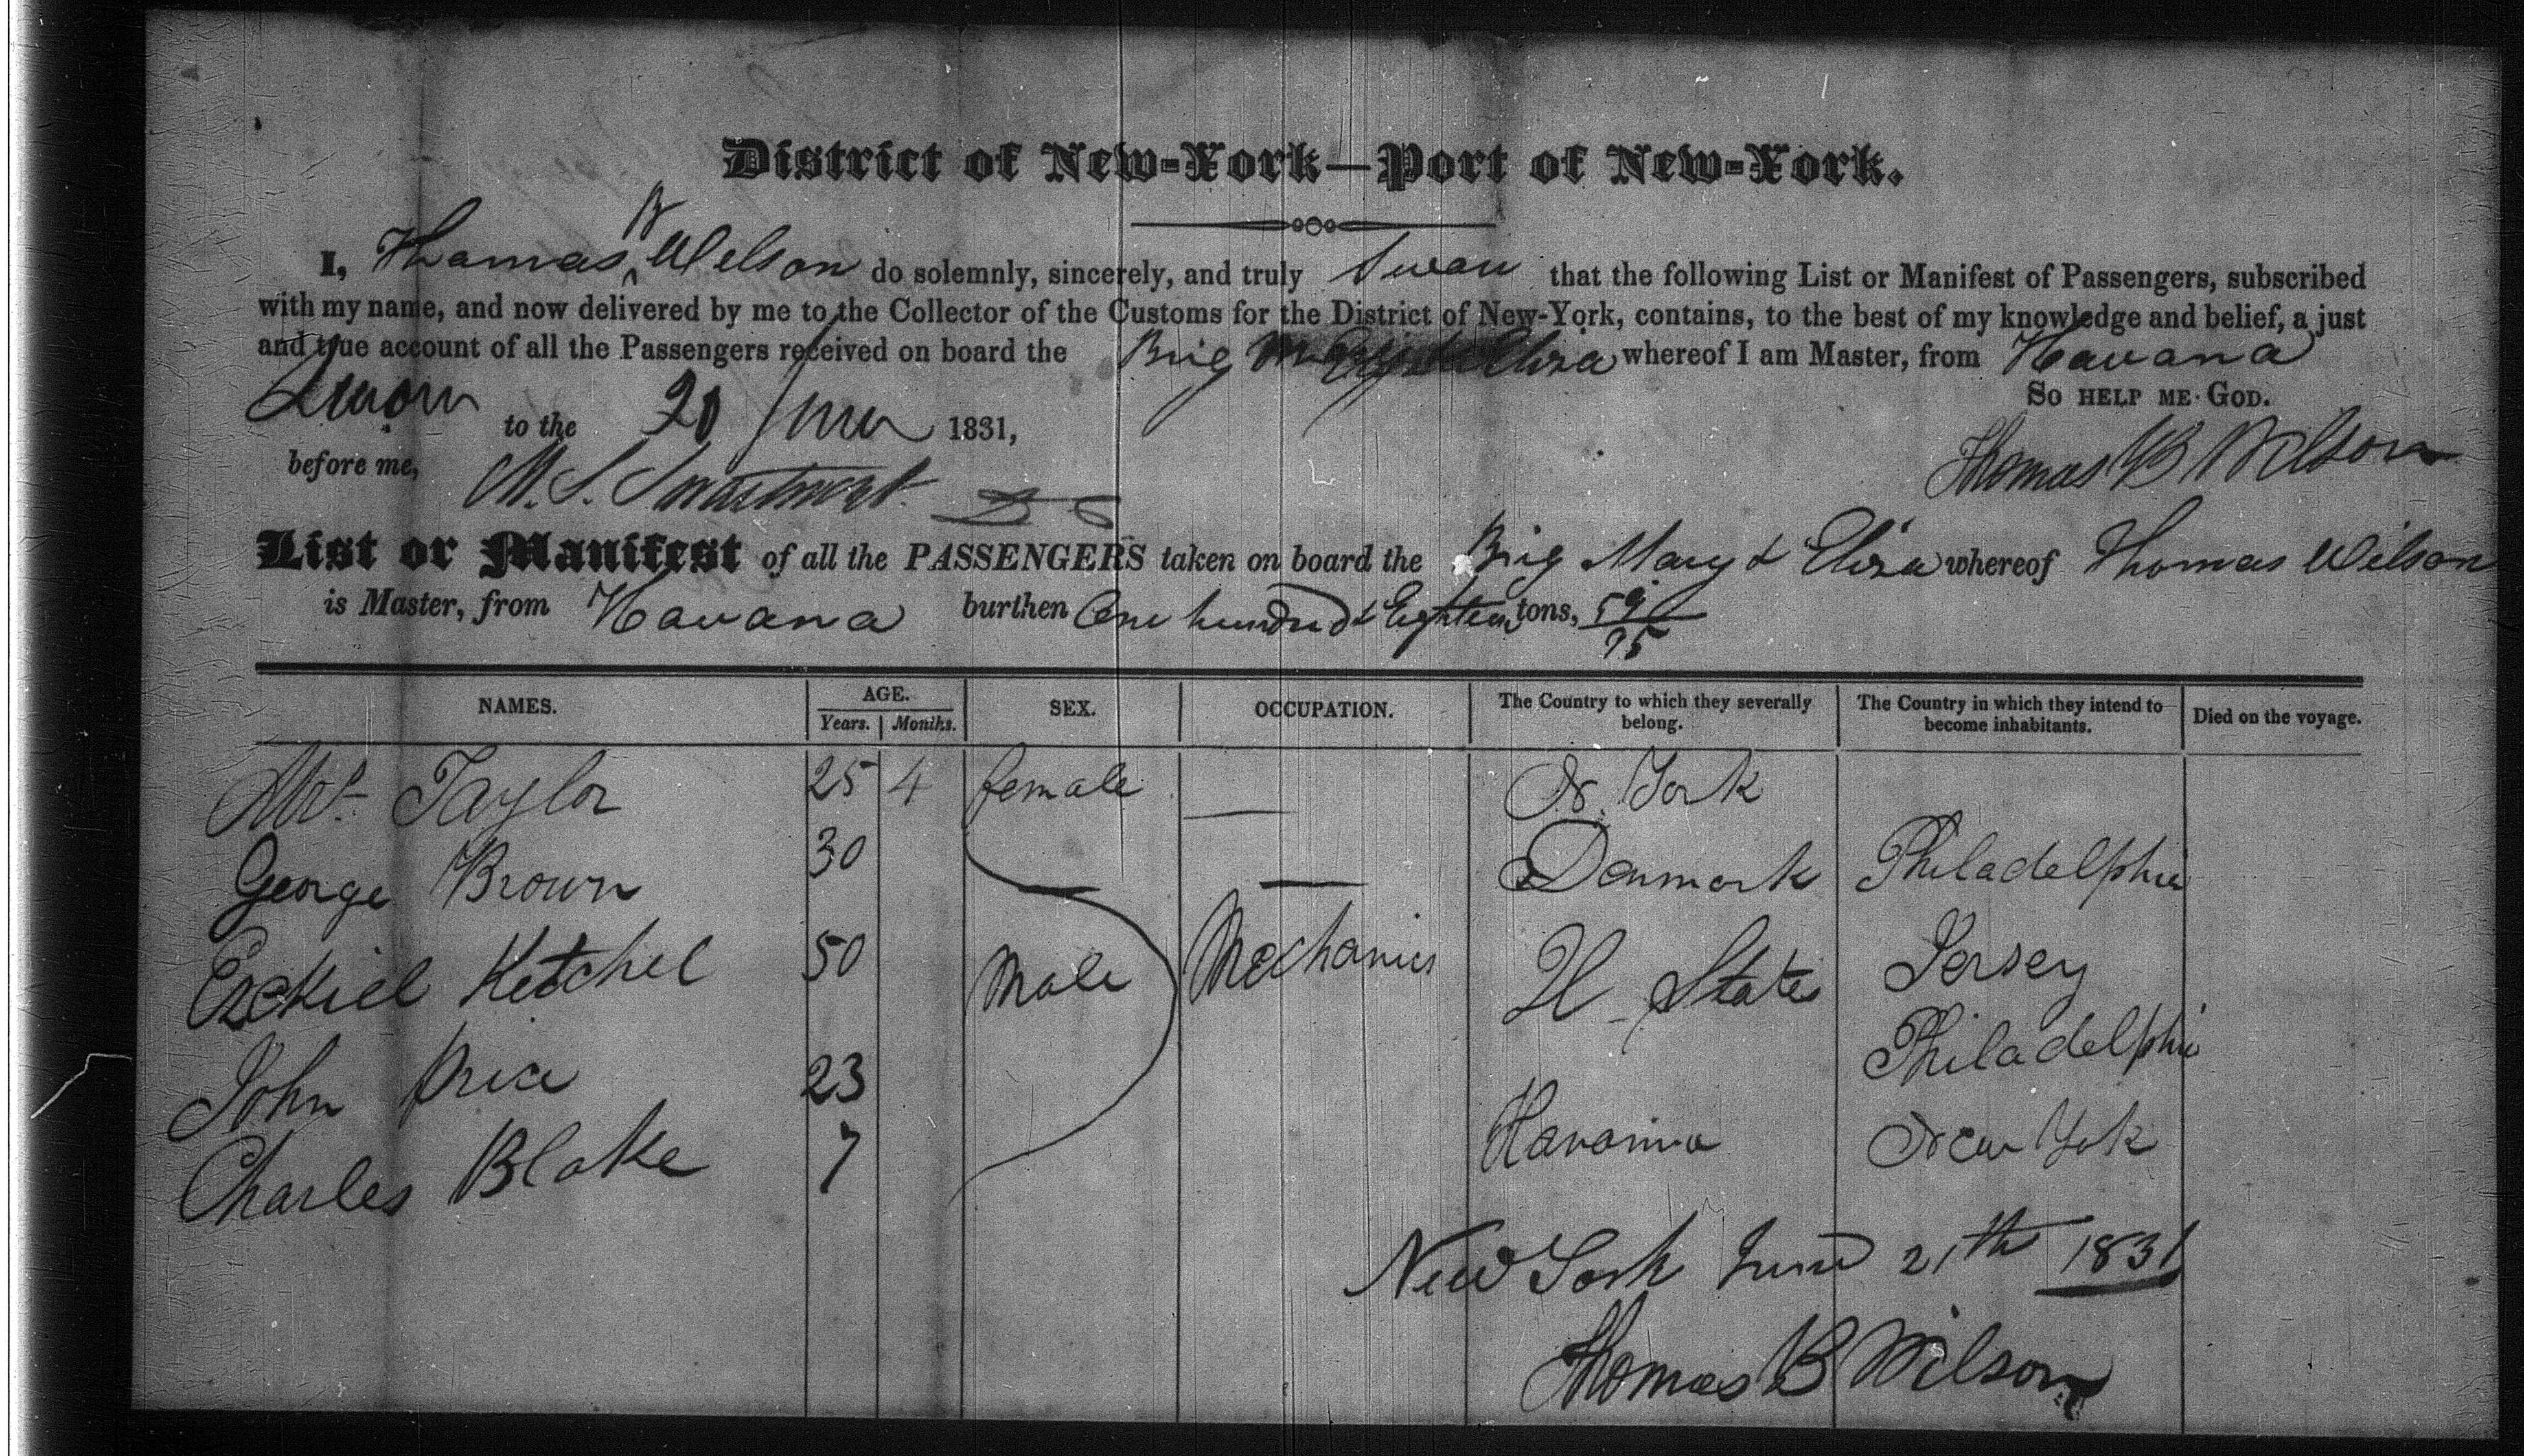 District of New-York—Port of New-York.
I, Thomas B Wilson do solemnly, sincerely, and truly Swear that the following List or Manifest of Passengers, subscribed
with my name, and now delivered by me to the Collector of the Customs for the District of New-York, contains, to the best of my knowledge and belief, a just
and true account of all the Passengers received on board the Brig Mary & Eliza whereof I am Master, from Havana
So help me God.
Sworn to the 21 June 1831,
before me, M. S. Swartwout
Thomas B Wilson
List or Manifest of all the PASSENGERS taken on board the Brig Mary & Eliza whereof Thomas Wilson
is Master, from Havana burthen One hundred & Eighteen tons, 59/95
NAMES. AGE. Years. Months. SEX. OCCUPATION. The Country to which they severally belong. The Country in which they intend to become inhabitants. Died on the voyage.
Mrs. Taylor 25 4 female — N. York
George Brown 30 — Denmark Philadelphia
Ezekiel Ketchel 50 Male Mechanics U States Jersey
John Price 23 Philadelphi
Charles Blake 7 Havanna New Yok
New York June 21th 1831
Thomas B Wilson